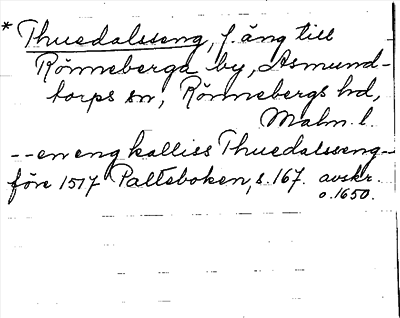 * Thuedalsseng, f. äng till
Rönneberga by, Asmund-
torps sn, Rönnebergs hd,
Malm. l.
-- en eng kalliss Thuedalsseng --
före 1517 Palteboken, s. 167. avskr.
o. 1650.